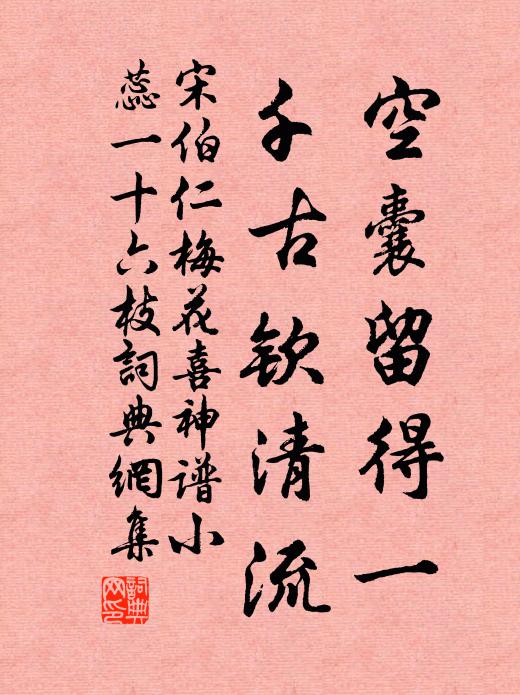 空囊留得一
千古欽清流
宋伯仁梅花喜神譜小
蕊一十六枝詞典網集
詞典
网印